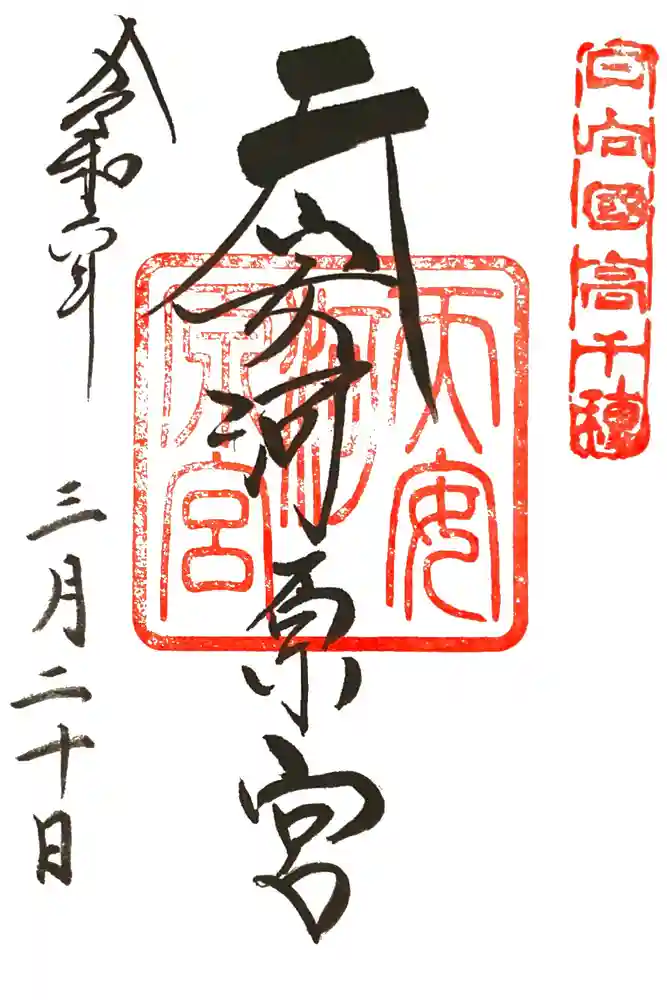 日向國高千穗
天安河原宮
天安
河
原宮
令和六年
三月二十日